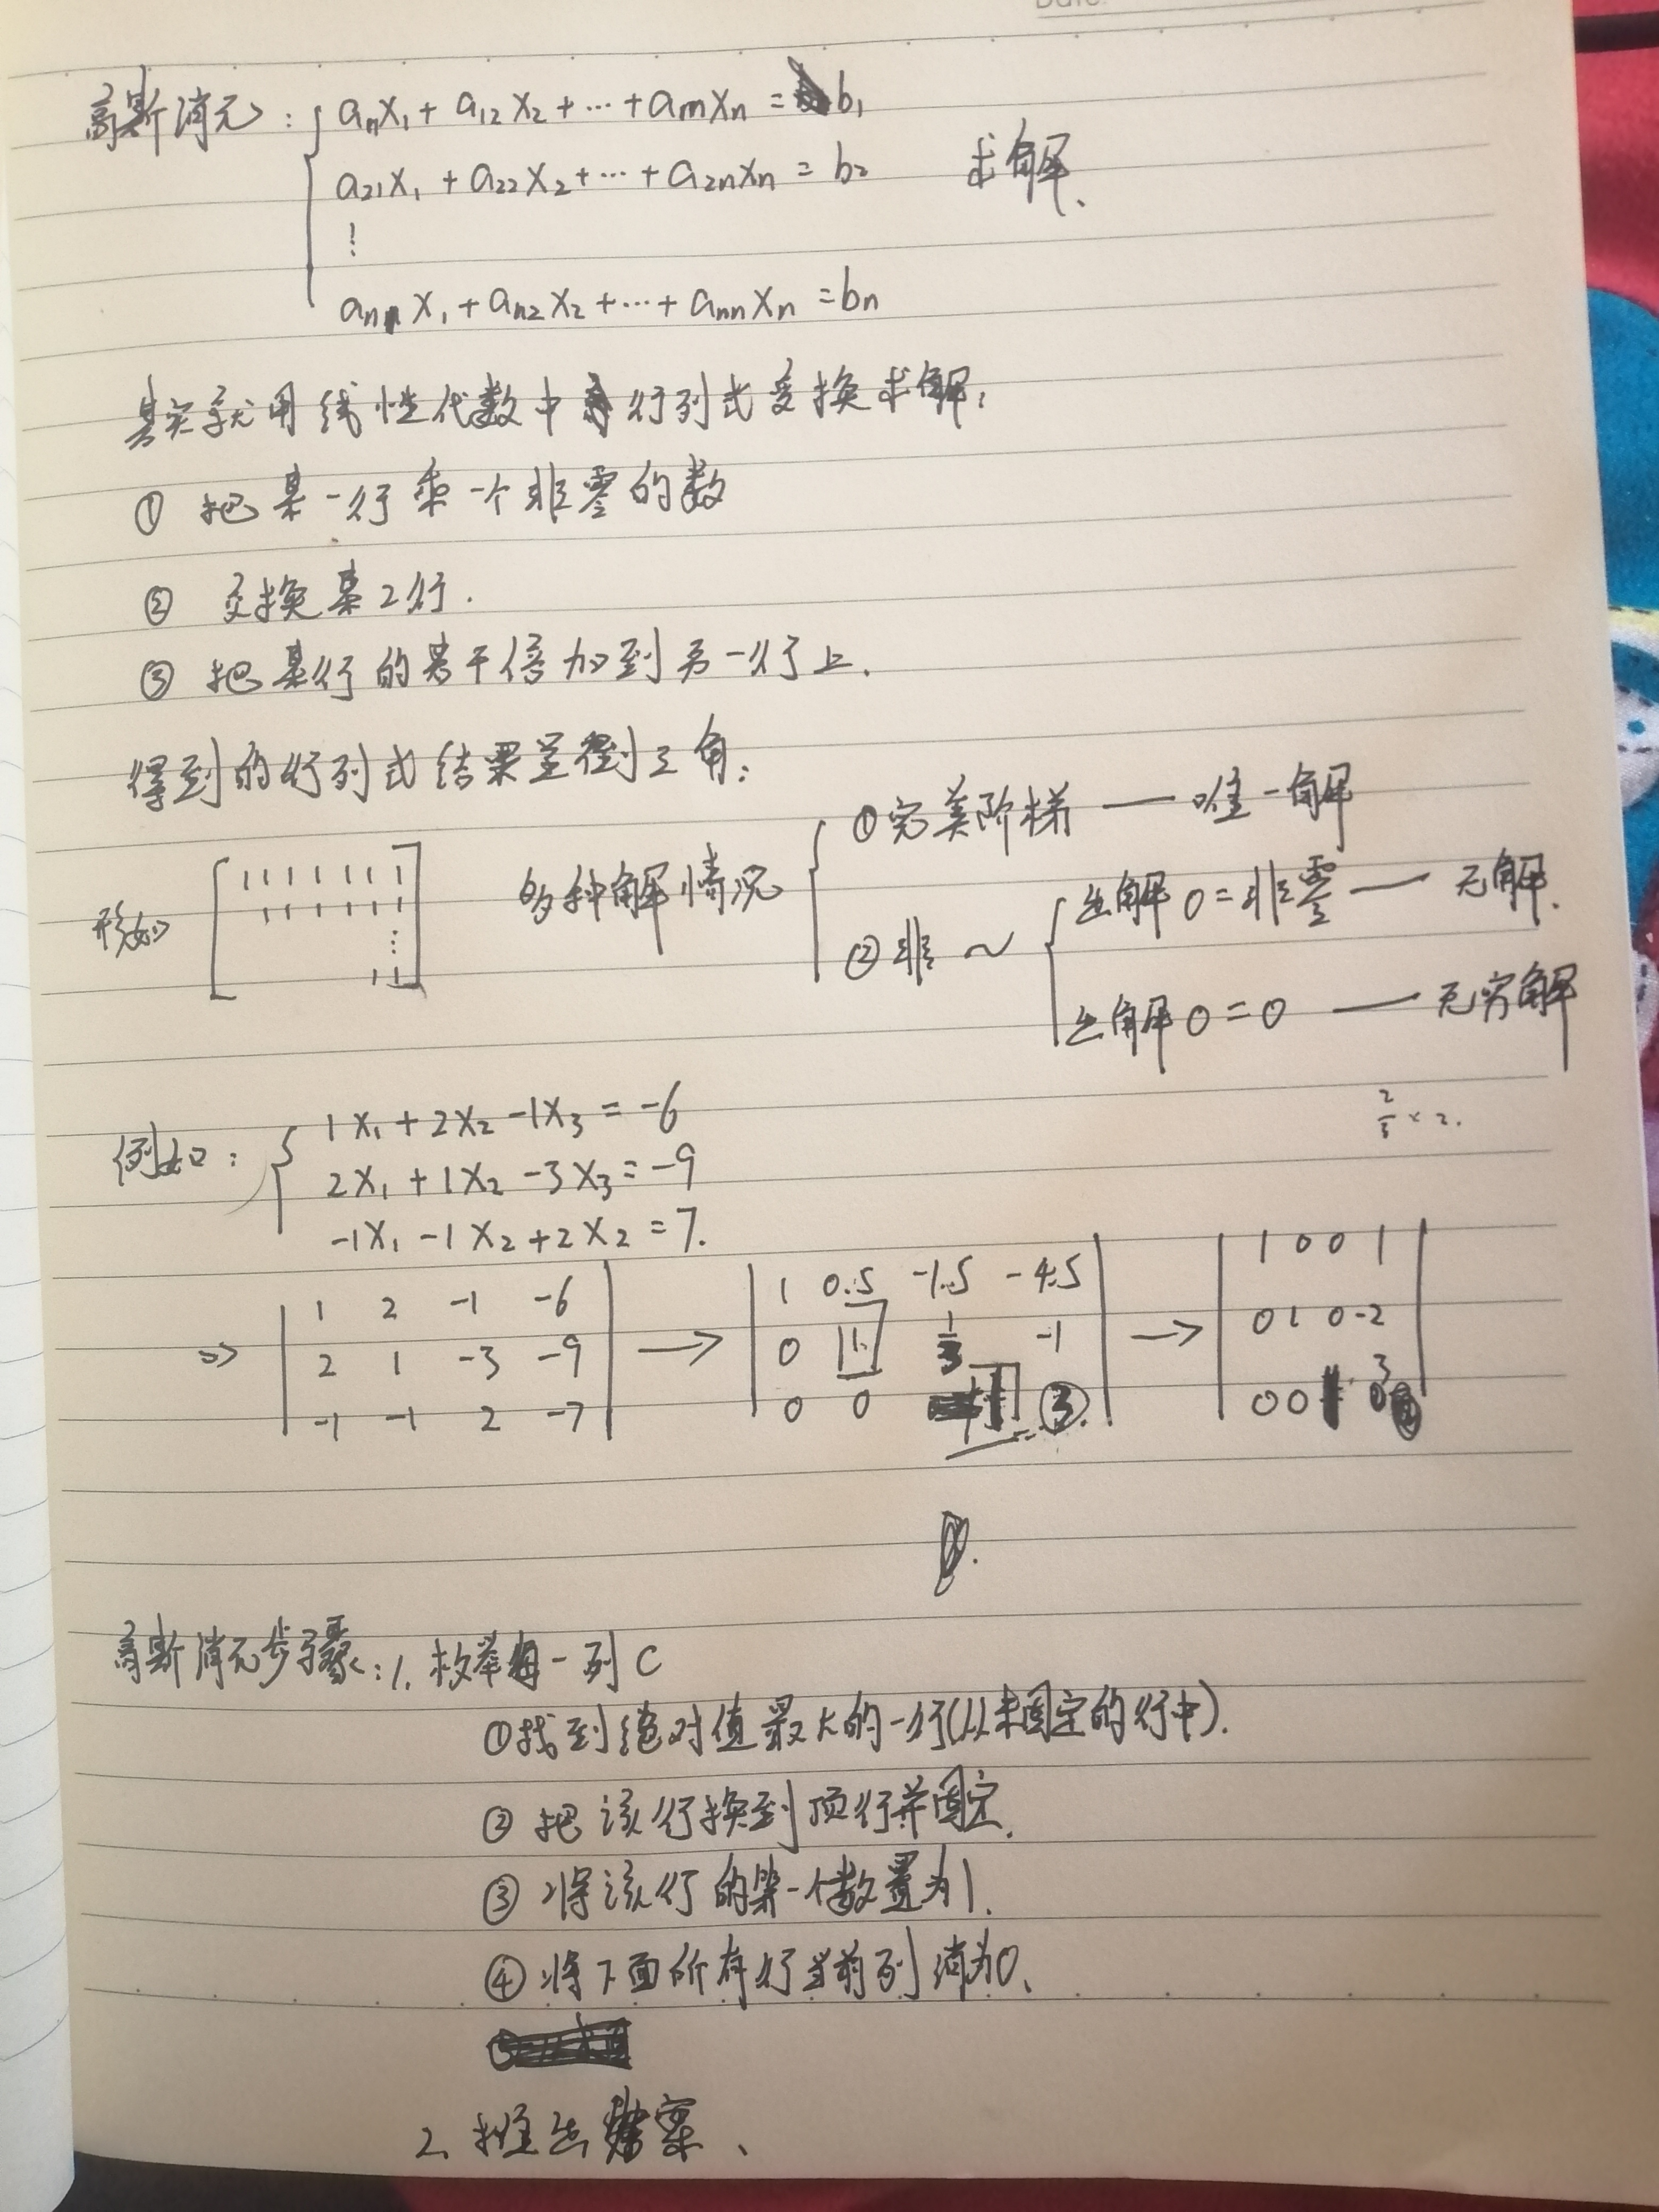 高斯消元: { a₁₁x₁ + a₁₂x₂ + ⋯ + a₁nxn = b₁
a₂₁x₁ + a₂₂x₂ + ⋯ + a₂nxn = b₂ 求解.
⋮
an₁x₁ + an₂x₂ + ⋯ + annxn = bn
其实就用线性代数中行列式变换求解:
① 把某一行乘一个非零的数
② 交换某2行.
③ 把某行的若干倍加到另一行上.
得到的行列式结果呈倒三角:
形如 [ 1 1 1 1 1 1 1
1 1 1 1 1 1
⋮
1 1 ]
多种解情况 { ①完美阶梯 — 唯一解
②非 ~ { 出解 0 = 非零 — 无解.
出解 0 = 0 — 无穷解
2/3 × 2.
例如: { 1x₁ + 2x₂ -1x₃ = -6
2x₁ + 1x₂ -3x₃ = -9
-1x₁ -1x₂ +2x₂ = 7.
=> | 1 2 -1 -6 | → | 1 0.5 -1.5 -4.5 | → | 1 0 0 1 |
| 2 1 -3 -9 | | 0 1 1/3 -1 | | 0 1 0 -2 |
| -1 -1 2 -7 | | 0 0 1 3 | | 0 0 1 3 |
高斯消元步骤: 1. 枚举每一列 c
①找到绝对值最大的一行(从未固定的行中).
② 把该行换到顶行并固定.
③ 将该行的第一个数置为1.
④ 将下面所有行当前列消为0.
2. 推出答案、